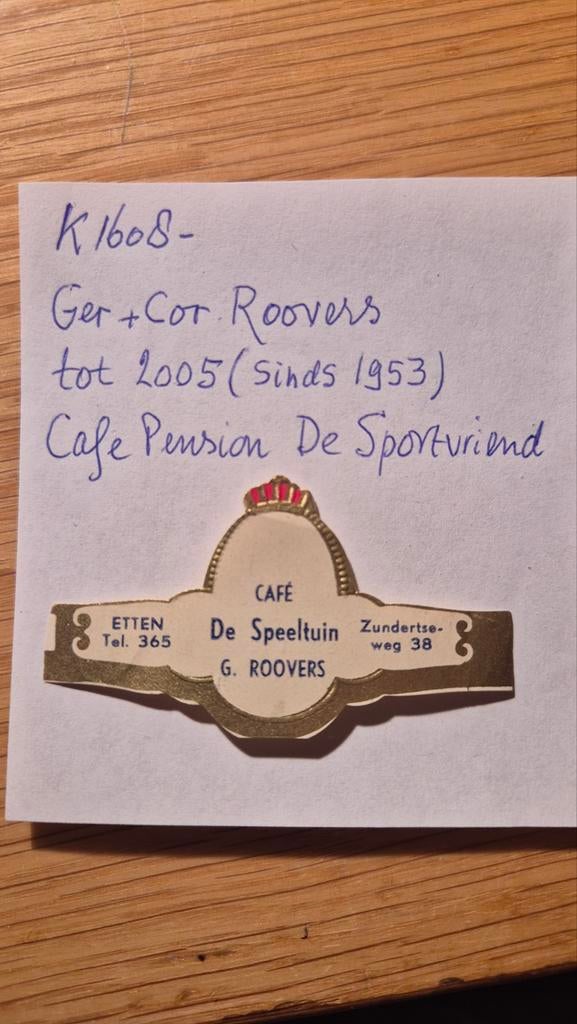 K1608-
Ger + Cor Roovers
tot 2005 (sinds 1953)
Cafe Pension De Sportvriend
CAFÉ
De Speeltuin
G. ROOVERS
ETTEN
Tel. 365
Zundertse-
weg 38